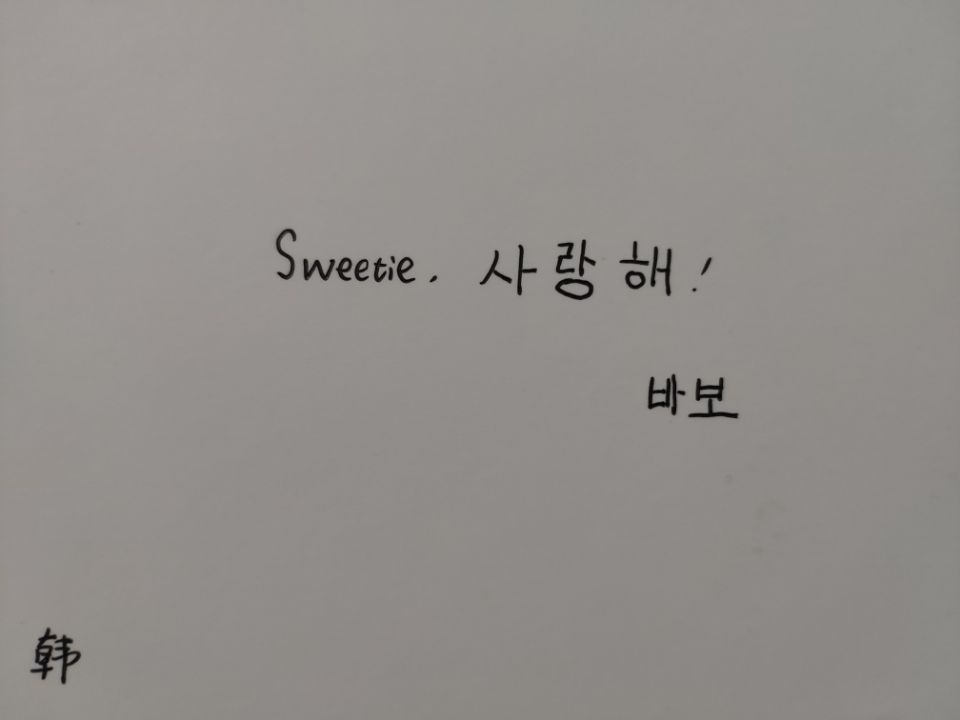 Sweetie, 사랑해!
바보
韩